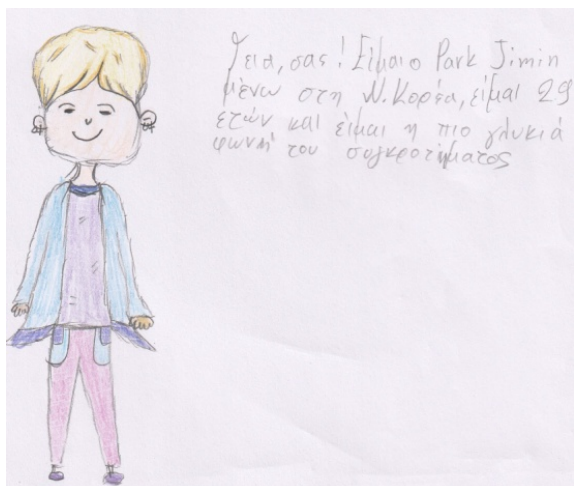 Γεια, σας! Είμαι ο Park Jimin
μένω στη Ν. Κορέα, είμαι 29
ετών και είμαι η πιο γλυκιά
φωνή του συγκροτήματος